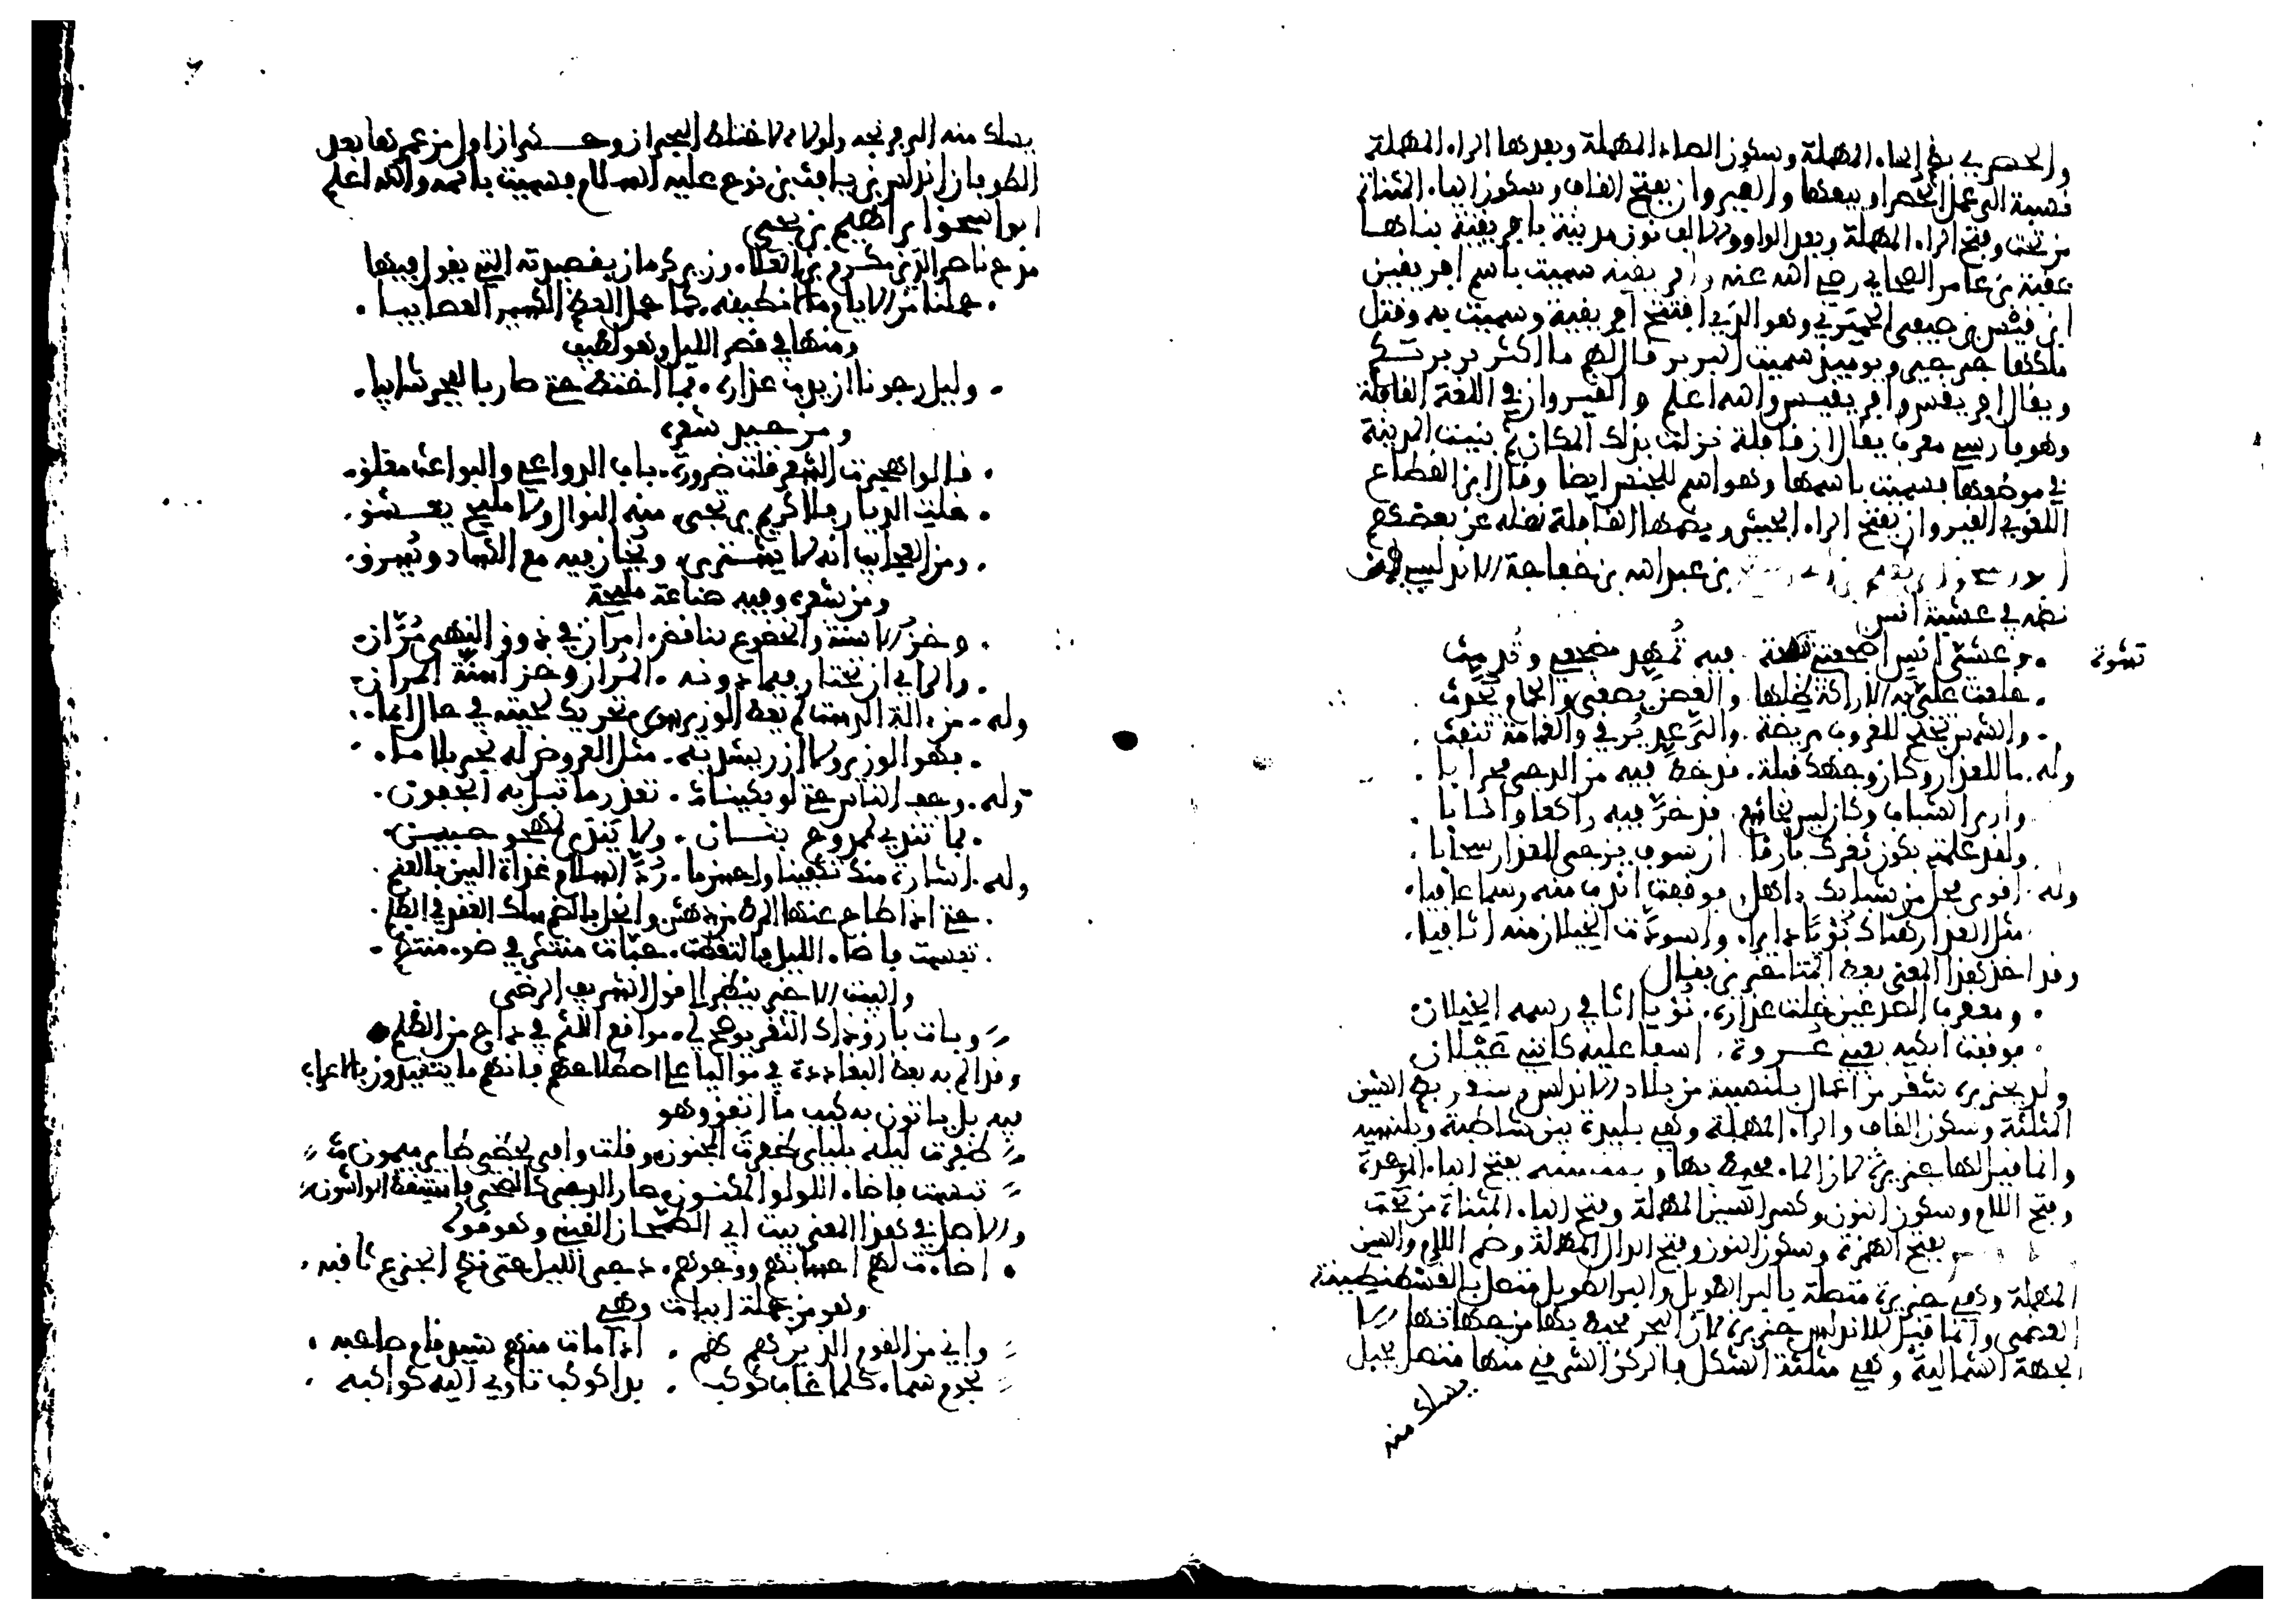 والحصري بضم الحاء المهملة وسكون الصاد المهملة وبعدها الراء المهملة
نسبة الى عمل الحصر او بيعها والقيروان بفتح القاف وسكون الياء المثناة
من تحت وفتح الراء المهملة وبعد الواو والالف نون مدينة بافريقية بناها
عقبة بن عامر الصحابي رضي الله عنه وافريقية سميت باسم افريقين
ابن قيس بن صيفي الحميري وهو الذي افتتح افريقية وسميت به وقتل
ملكها جرجير ويوميذ سميت البربر قال لهم ما اكثر بربرتكم
ويقال افريقس وافريقيس والله اعلم والقيروان في اللغة القافلة
وهو فارسي معرب يقال ان قافلة نزلت بذلك المكان ثم بنيت المدينة
في موضعها فسميت باسمها وهو اسم للجيش ايضا وقال ابن القطاع
اللغوي القيروان بفتح الراء الجيش وبضمها القافلة نقله عن بعضهم
بن عبد الله بن خفاجة الاندلسي
نظمه في عشية انس
وعشي انس اضجعتني نشوة فيه تمهد مضجعي وتدمث
نشوة
خلعت علي به الاراكة ظلها والغصن يصغي والحمام يحدث
والشمس تجنح للغروب مريضة والرعد يرقي والغمامة تنفث
وله ما للعذار وكان وجهك قبلة قد خط فيه من الدجى محرابا
وارى الشباب وكان ليس بخاشع قد خر فيه راكعا وانابا
ولقد علمت بكون ثغرك بارقا ان سوف يزجي للعذار سحابا
وله اقوى محل من شبابك داهل فوقفت اندب منه رسما عافيا
مثل العذار هناك نؤيا داثرا واسودت الخيلان منه اثافيا
وقد اخذ هذا المعنى بعض المتاخرين فقال
ومعقرب الصدغين خلت عذاره نؤيا اثافي رسمه الخيلان
فوقفت ابكيه بعيني عروة اسفا عليه كانني غيلان
ولد بجزيرة شقر من اعمال بلنسية من بلاد الاندلس وشقر بضم الشين
المثلثة وسكون القاف والراء المهملة وهي بليدة بين شاطبة وبلنسيه
وانما قيل لها جزيرة لان الماء محيط بها وبلنسيه بفتح الباء الموحدة
وفتح اللام وسكون النون وكسر السين المهملة وفتح الياء المثناة من تحت
بفتح الهمزة وسكون النون وفتح الدال المهملة وضم اللام والسين
المهملة وهي جزيرة متصلة بالبر الطويل والبر الطويل متصل بالقسطنطينة
العظمى وانما قيل للاندلس جزيرة لان البحر محيط بها من جهاتها الا
الجهة الشمالية وهي مثلثة الشكل فالركن الشرقي منها متصل بجبل
يسلك منه
يسلك منه الى افرنجه ولولاه لاختلط البحران وحكي ان اول من عمرها بعد
الطوفان اندلس بن يافث بن نوح عليه السلام فسميت باسمه والله اعلم
ابو اسحق ابراهيم بن يحيى
مدح ناصر الدين مكرم بن العلاء وزير كرمان بقصيدته التي يقول فيها
حملنا من الايام ما لا نطيقه كما حمل العظم الكسير العصايبا
ومنها في قصر الليل وهو لطيف
وليل رجونا ان يدب عذاره فما اختط حتى صار بالفجر شايبا
ومن جيد شعره
قالوا هجرت الشعر قلت ضرورة باب الدواعي والبواعث مغلق
خلت الديار فلا كريم يرتجى منه النوال ولا مليح يعشق
ومن العجايب انه لا يشترى ويخان فيه مع الكساد ويسرق
ومن شعره وفيه صناعة مليحة
وخز الاسنة والخضوع لناقص امران في ذوق النهى مران
والراي ان يختار فيما دونه المران وخز اسنة المران
وله من آلة الدست لم يعط الوزير سوى تحريك لحيته في حال ايما
فهو الوزير ولا ازر يشد به مثل العروض له بحر بلا ما
وله وجف الناس حتى لو بكينا تعذر ما تبل به الجفون
فما تندى لممدوح بنان ولا تندى لمهجو جبين
وله اشارة منك تكفينا واحسن ما رد السلام غداة البين بالعنم
حتى اذا طاح عنها المرط من دهش وانحل بالضم سلك العقد في الظلم
تبسمت فاضاء الليل فالتقطت حبات منتثر في ضوء منتظم
والبيت الاخير ينظر الى قول الشريف الرضى
وبات بارق ذاك الثغر يوضح لي مواقع اللثم في داج من الظلم
وقد الم به بعض البغاددة في مواليا على اصطلاحهم فانهم ما يتقيدون بالاعراب
فيه بل ياتون به كيف ما اتفق وهو
ظفرت ليله بليلى ظفرة المجنون وقلت وافى لحظي طاير ميمون
تبسمت فاضاء اللولو المكنون صار الدجى كالضحى فاستيقظ الواشون
والاصل في هذا المعنى بيت ابي الطمحان القيني وهو قوله
اضاءت لهم احسابهم ووجوههم دجى الليل حتى نظم الجزع ثاقبه
وهو من جملة ابيات وهي
واني من القوم الذين هم هم اذا مات منهم سيد قام صاحبه
نجوم سماء كلما غاب كوكب بدا كوكب تاوي اليه كواكبه